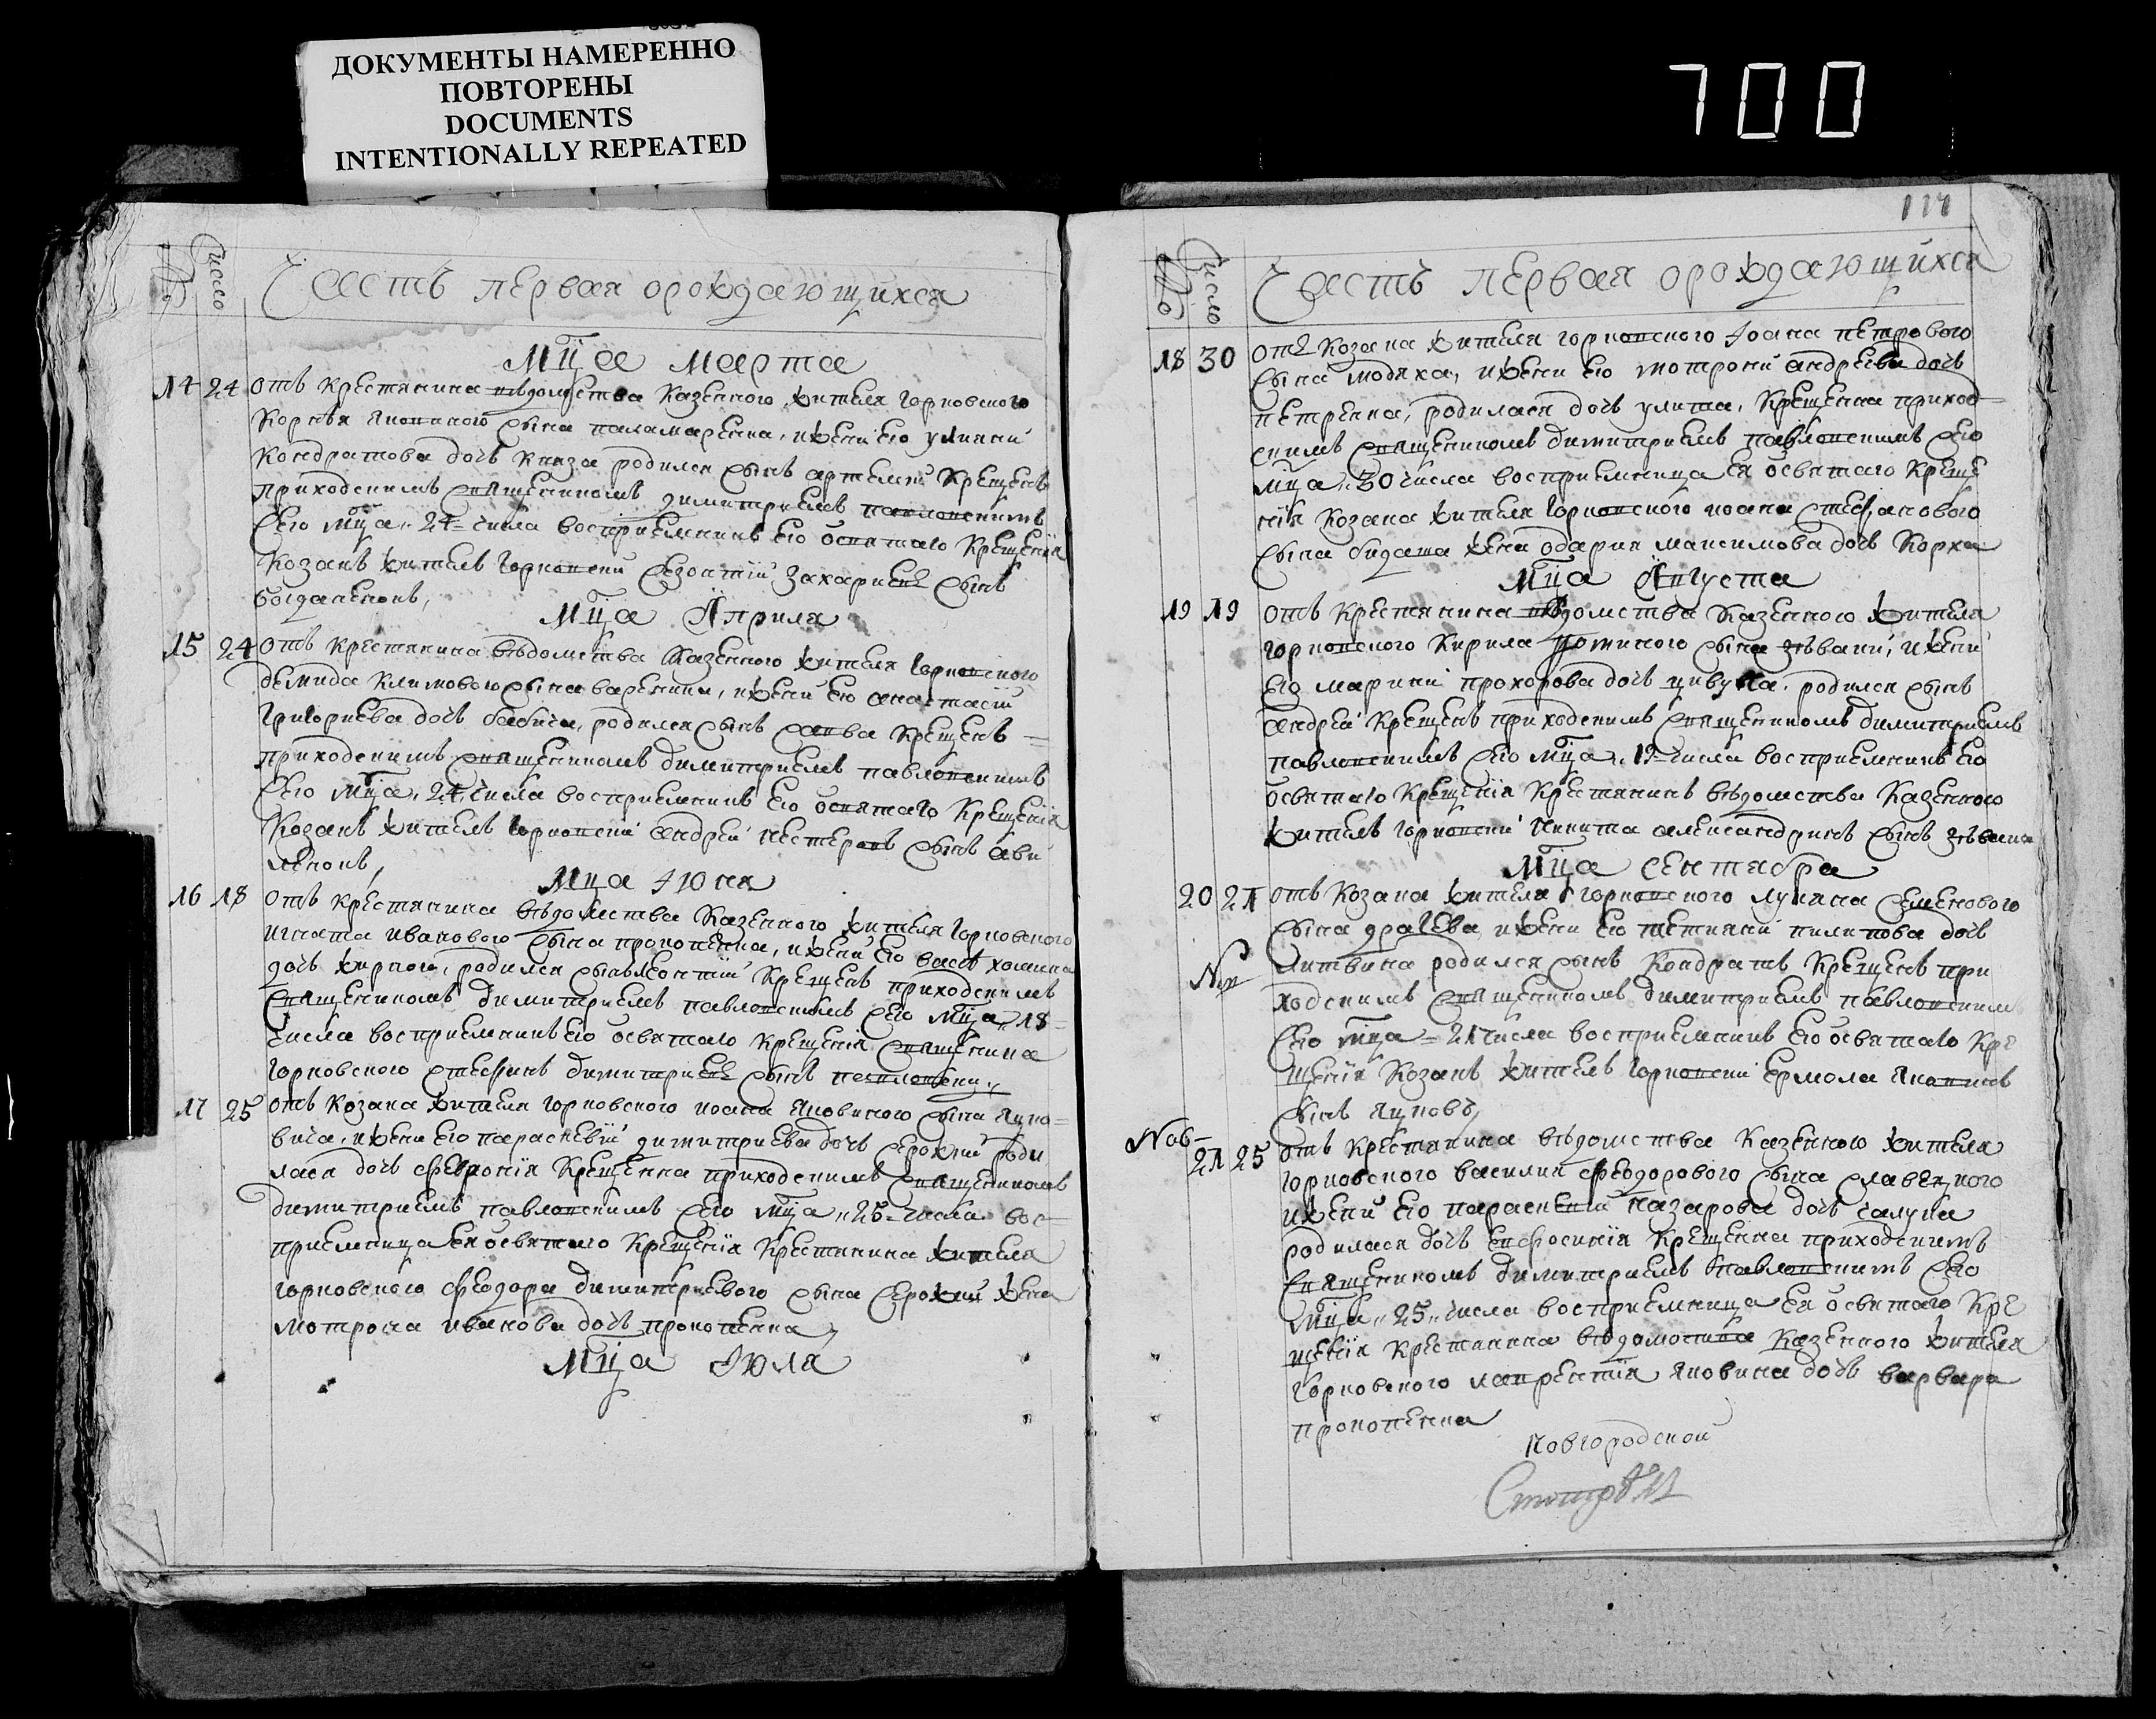 ДОКУМЕНТЫ НАМЕРЕННО
ПОВТОРЕНЫ
DOCUMENTS
INTENTIONALLY REPEATED
700
№
Число
Часть первая ораждающихся
Мца Марта
14 24 отъ крестянина вѣдомства казенного жителя горковского
корнѣя яковлиного сына паламаренка, и жени его улияни
кондратова дочь родился сынъ артемий крещенъ
приходскимъ священикомъ димитриемъ павловскимъ
сего мца 24 числа восприемникъ его освятаго крещения
козакъ житель горковский захариевъ сынъ
богдаченокъ,
Мца Априля
15 24 отъ крестянина вѣдомства казенного жителя горковского
демида климового сына вареника, и жени его анастасіи
григориева дочь бабича, родился сынъ савва крещенъ
приходскимъ священикомъ димитриемъ павловскимъ
сего мца 24 числа восприемникъ его освятаго крещенія
козакъ житель горковский андрей нестеровъ сынъ
Мца Іюня
16 18 отъ крестянина вѣдомства казенного жителя горковского
игната иванового сына прокопенка, и жени его
дочь жирного, родился сынъ леонтій крещенъ приходскимъ
священикомъ димитриемъ павловскимъ сего мца 18
числа восприемникъ его освятаго крещенія священика
горковского стефанъ димитриевъ сынъ павловский
17 25 отъ козака жителя горковского иоана яковиного сына яцко
вича, и жени его параскевіи димитриева дочь сережкий роди
лася дочь февронія крещенна приходскимъ священикомъ
димитриемъ павловскимъ сего мца 25 числа вос
приемница ея освятаго крещенія крестянина жителя
горковского феодора димитриевого сына сережкий жена
мотрона иванова дочь прокопенка
Мца Июля
117
№
Число
Часть первая ораждающихся
18 30 отъ козака жителя горковского Іоана петрового
сына модяха, и жени его мотрони андреева дочь
петренка, родилася дочь улита, крещенна приход
скимъ священикомъ димитриемъ павловскимъ сего
мца 30 числа восприемница ея освятаго креще
нія козака жителя горковского иоана стефанового
сына бидаша жена одария максимова дочь коржа
Мца Августа
19 19 отъ крестянина вѣдомства казенного жителя
горковского кирила сына зѣваки, и жени
его марини прохорова дочь цивука, родился сынъ
андрей крещенъ приходскимъ священикомъ димитриемъ
павловскимъ сего мца 19 числа восприемникъ его
освятаго крещенія крестянинъ вѣдомства казенного
житель горковский никита александринъ сынъ зѣвака
Мца Сентября
20 21 отъ козака жителя горковского лукяна семенового
сына драгева, и жени его тетияни пилипова дочь
литвина родился сынъ кондратъ крещенъ при
ходскимъ священикомъ димитриемъ павловскимъ
сего мца 21 числа восприемникъ его освятаго кре
щенія козакъ житель горковский ермола яковлевъ
сынъ яцковъ,
Ноб
21 25 отъ крестянина вѣдомства казенного жителя
горковского василия феодорового сына славецкого
и жени его параскевии назарова дочь галука
родилася дочь евфросинія крещенна приходскимъ
священикомъ димитриемъ павловскимъ сего
мца 25 числа восприемница ея освятаго кре
щенія крестянина вѣдомоства казенного жителя
горковского лаврентія яковина дочь варвара
прокопенка